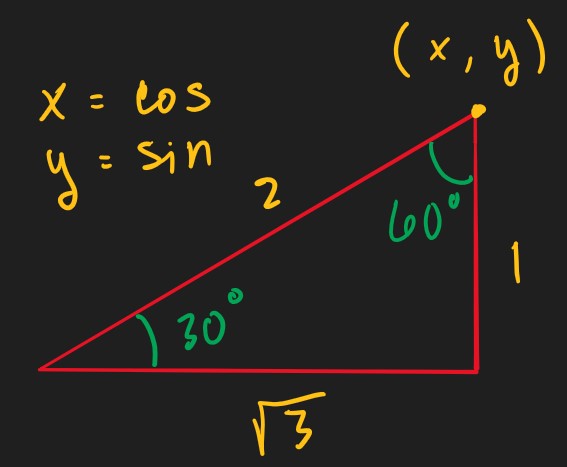 (x, y)
x = cos
y = sin
2
60°
1
30°
√3